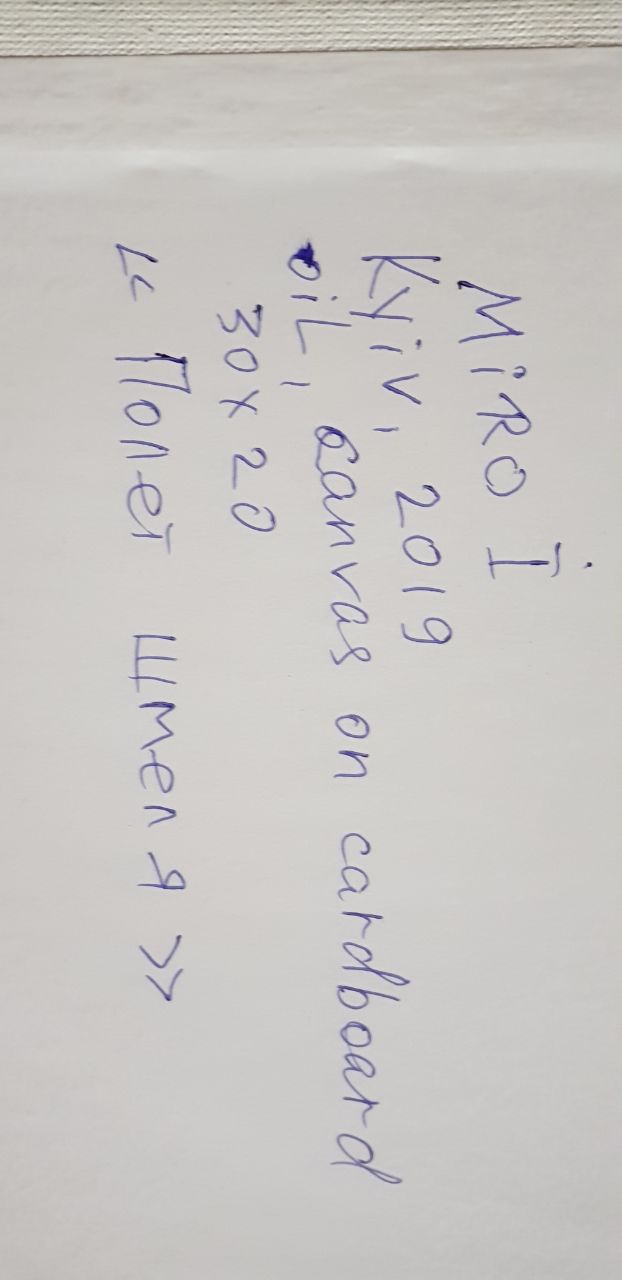 MiRO İ
Kyiv, 2019
oiL, canvas on cardboard
30x20
«Полет шмеля»